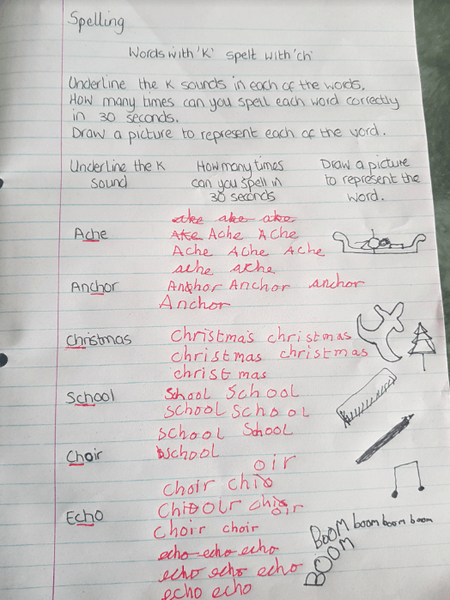 Spelling
Words with 'K' spelt with 'ch'
Underline the K sounds in each of the words.
How many times can you spell each word correctly
in 30 seconds.
Draw a picture to represent each of the word.
Underline the K
sound
How many times
can you spell in
30 seconds
Draw a picture
to represent the
word.
ake ake ake
Ache
Ake Ache Ache
Ache Ache Ache
ache ache
Anchor
Anchor Anchor anchor
Anchor
Christmas
Christmas christmas
christmas christmas
christmas
School
School School
School School
School School
School
Choir
oir
choir chio
Chioolr chioir
Choir choir
Echo
echo echo echo
echo echo echo
echo echo
BOOM boom boom boom
BOOM